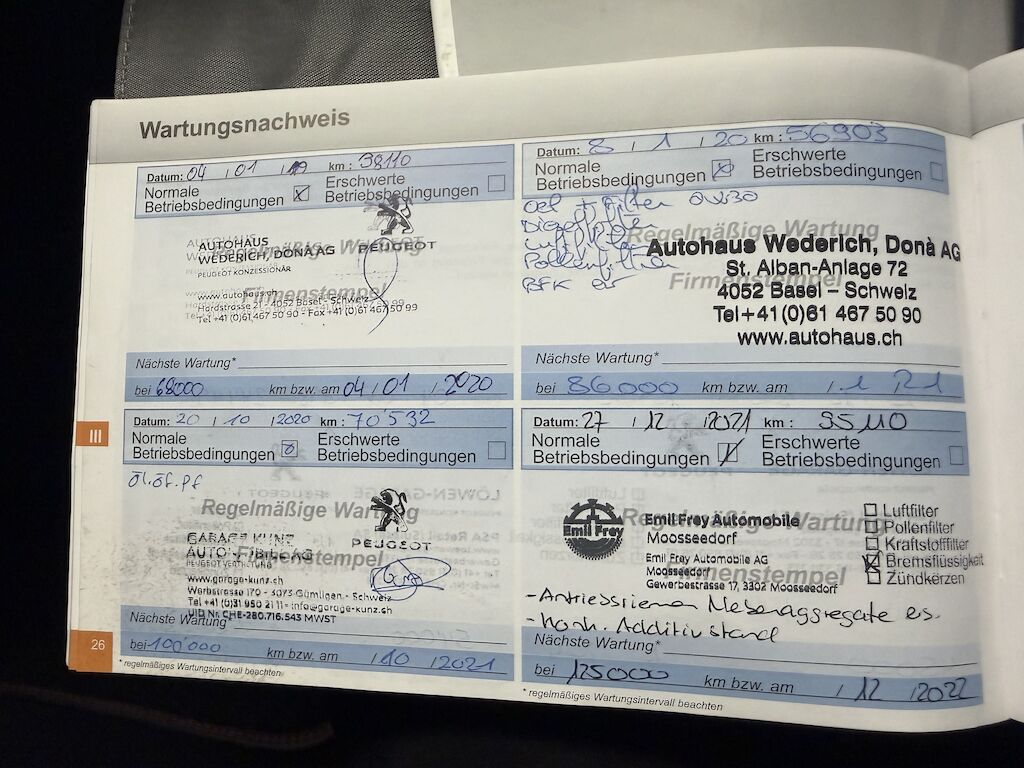 Wartungsnachweis
Datum: 04 / 01 / 19 km : 38110
Normale Betriebsbedingungen ☒ Erschwerte Betriebsbedingungen ☐
Regelmäßige Wartung
AUTOHAUS
WEDERICH, DONÀ AG
PEUGEOT KONZESSIONÄR
PEUGEOT
Firmenstempel
www.autohaus.ch
Hardstrasse 21 - 4052 Basel - Schweiz
Tel +41 (0)61 467 50 90 - Fax +41 (0)61 467 50 99
Nächste Wartung*
bei 68000 km bzw. am 04 / 01 / 2020
Datum: 8 / 1 / 20 km : 56903
Normale Betriebsbedingungen ☒ Erschwerte Betriebsbedingungen ☐
Oel + Filter 0W30
Regelmäßige Wartung
Luftfilter
Pollenfilter
Autohaus Wederich, Donà AG
St. Alban-Anlage 72
Firmenstempel
4052 Basel – Schweiz
Tel+41(0)61 467 50 90
www.autohaus.ch
Nächste Wartung*
bei 86000 km bzw. am / 1 / 21
Datum: 20 / 10 / 2020 km : 70'532
Normale Betriebsbedingungen ☒ Erschwerte Betriebsbedingungen ☐
Öl. Öf. Pf
Regelmäßige Wartung
GARAGE KUNZ
PEUGEOT
Firmenstempel
PEUGEOT VERTRETUNG
www.garage-kunz.ch
Worbstrasse 170 - 3073 Gümligen - Schweiz
Tel +41 (0)31 950 21 11 - info@garage-kunz.ch
UID Nr. CHE-280.716.543 MWST
Nächste Wartung*
bei 100'000 km bzw. am / 10 / 2021
Datum: 27 / 12 / 2021 km : 95110
Normale Betriebsbedingungen ☒ Erschwerte Betriebsbedingungen ☐
Regelmäßige Wartung
Emil Frey
Emil Frey Automobile
Moosseedorf
Emil Frey Automobile AG
Moosseedorf
Gewerbestrasse 17, 3302 Moosseedorf
Firmenstempel
☐ Luftfilter
☐ Pollenfilter
☐ Kraftstofffilter
☒ Bremsflüssigkeit
☐ Zündkerzen
- Antriebsriemen Nebenaggregate es.
- Kontr. Additivstand
Nächste Wartung*
bei 125000 km bzw. am / 12 / 2022
26
III
* regelmäßiges Wartungsintervall beachten
* regelmäßiges Wartungsintervall beachten